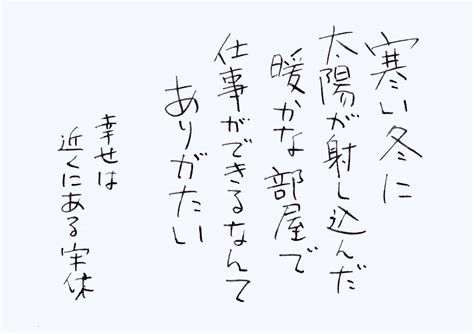 寒い冬に
太陽が射し込んだ
暖かな部屋で
仕事ができるなんて
ありがたい
幸せは
近くにある字休